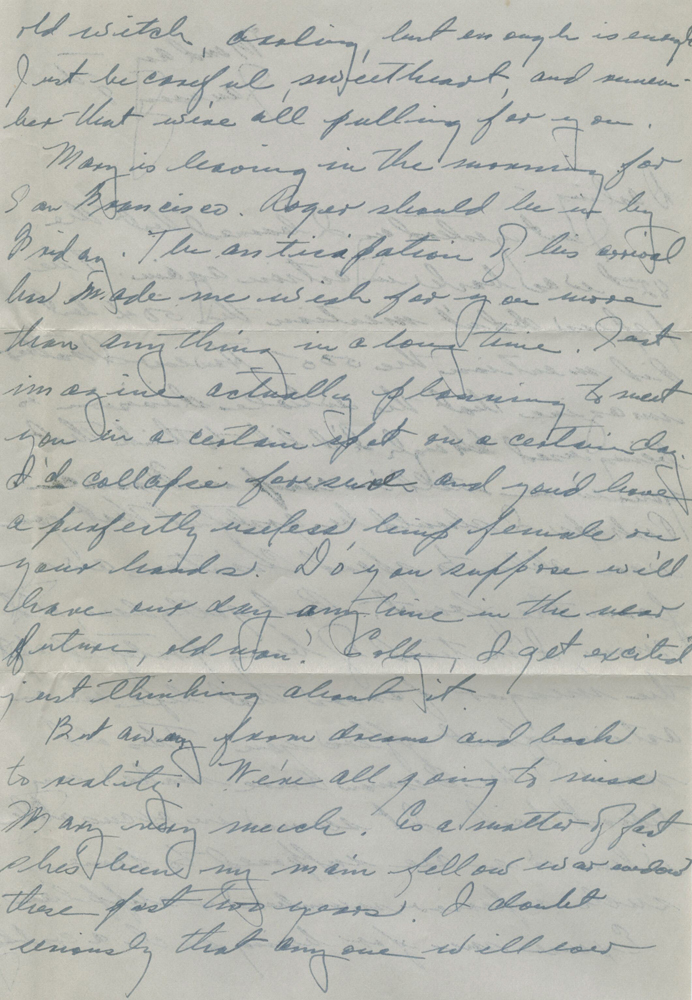 old witch, darling, but enough is enough
Just be careful, sweetheart, and remem-
ber that we're all pulling for you.
Mary is leaving in the morning for
San Francisco. Roger should be in by
Friday. The anticipation of his arrival
has made me wish for you more
than anything in a long time. Just
imagine actually planning to meet
you in a certain spot on a certain day.
I'd collapse for sure and you'd have
a perfectly useless, limp female on
your hands. Do you suppose we'll
have our day anytime in the near
future, old man? Golly, I get excited
just thinking about it.
But away from dreams and back
to reality. We're all going to miss
Mary very much. As a matter of fact
she's been my main fellow war widow
these past two years. I doubt
seriously that anyone will ever